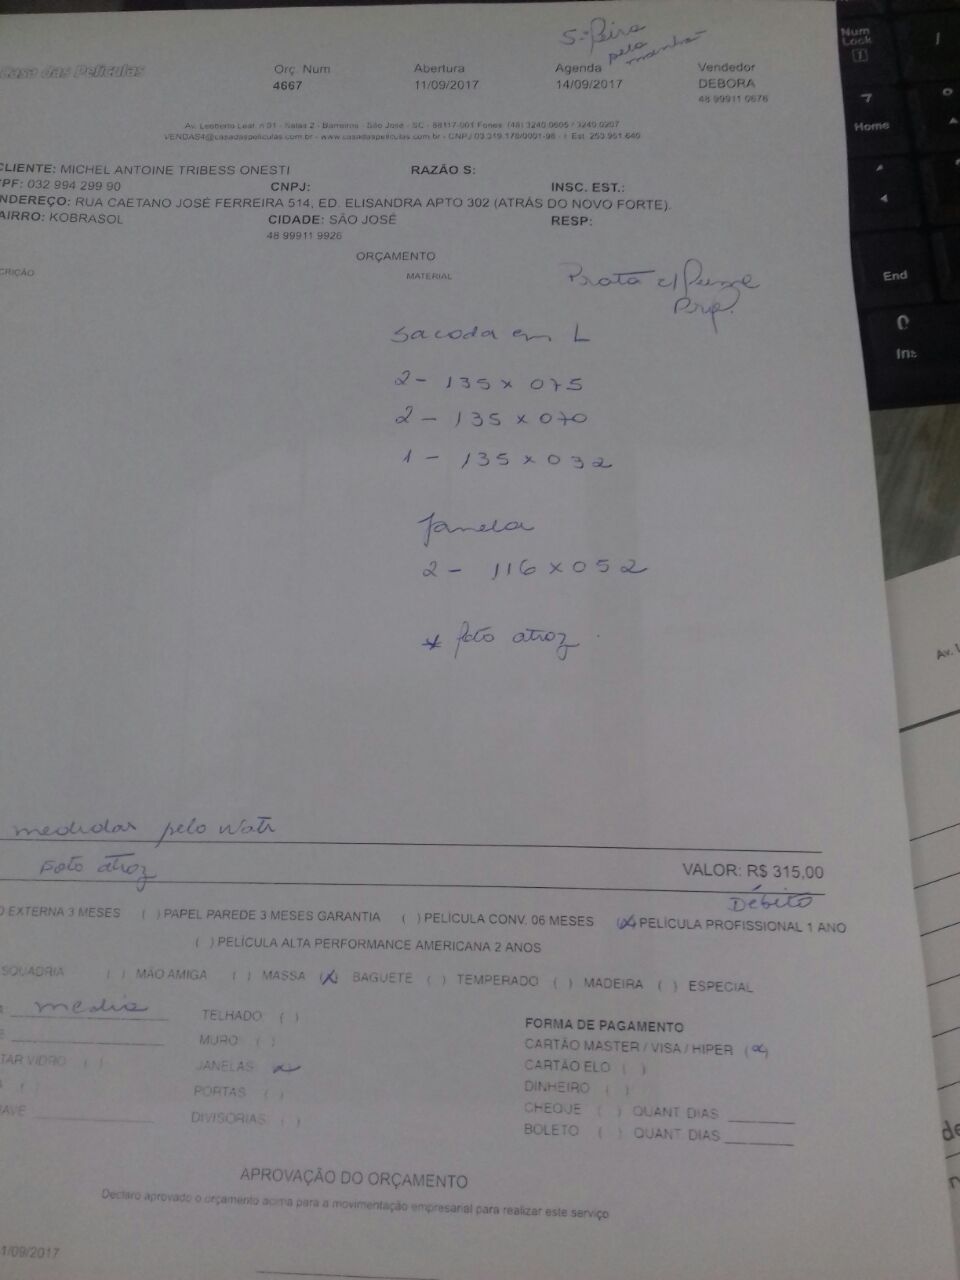 5ª feira
pela manhã
Casa das Películas
Orç. Num Abertura Agenda Vendedor
4667 11/09/2017 14/09/2017 DEBORA
48 99911 0676
Av. Leoberto Leal, n 01 - Salas 2 - Barreiros - São José - SC - 88117-001 Fones: (48) 3240 0605 / 3240 0207
VENDAS4@casadaspeliculas.com.br - www.casadaspeliculas.com.br - CNPJ 03.319.178/0001-98 - I. Est. 253.951.640
CLIENTE: MICHEL ANTOINE TRIBESS ONESTI RAZÃO S:
CPF: 032 994 299 90 CNPJ: INSC. EST.:
ENDEREÇO: RUA CAETANO JOSÉ FERREIRA 514, ED. ELISANDRA APTO 302 (ATRÁS DO NOVO FORTE).
BAIRRO: KOBRASOL CIDADE: SÃO JOSÉ RESP:
48 99911 9926
ORÇAMENTO
CRIÇÃO MATERIAL
Prata c/
Prof.
Sacada em L
2 - 135 x 075
2 - 135 x 070
1 - 135 x 032
Janela
2 - 116 x 052
* foto atroz
medidas pelo Wats
Foto atroz VALOR: R$ 315,00
Débito
O EXTERNA 3 MESES ( ) PAPEL PAREDE 3 MESES GARANTIA ( ) PELÍCULA CONV. 06 MESES (X) PELÍCULA PROFISSIONAL 1 ANO
( ) PELÍCULA ALTA PERFORMANCE AMERICANA 2 ANOS
SQUADRIA ( ) MÃO AMIGA ( ) MASSA (X) BAGUETE ( ) TEMPERADO ( ) MADEIRA ( ) ESPECIAL
media TELHADO ( )
MURO ( ) FORMA DE PAGAMENTO
TAR VIDRO ( ) JANELAS x CARTÃO MASTER / VISA / HIPER (x)
( ) PORTAS ( ) CARTÃO ELO ( )
AVE DIVISORIAS ( ) DINHEIRO ( )
CHEQUE ( ) QUANT. DIAS
BOLETO ( ) QUANT. DIAS
APROVAÇÃO DO ORÇAMENTO
Declaro aprovado o orçamento acima para a movimentação empresarial para realizar este serviço
1/09/2017
Num
Lock
7
Home
End
0
Ins
/
Av.
de